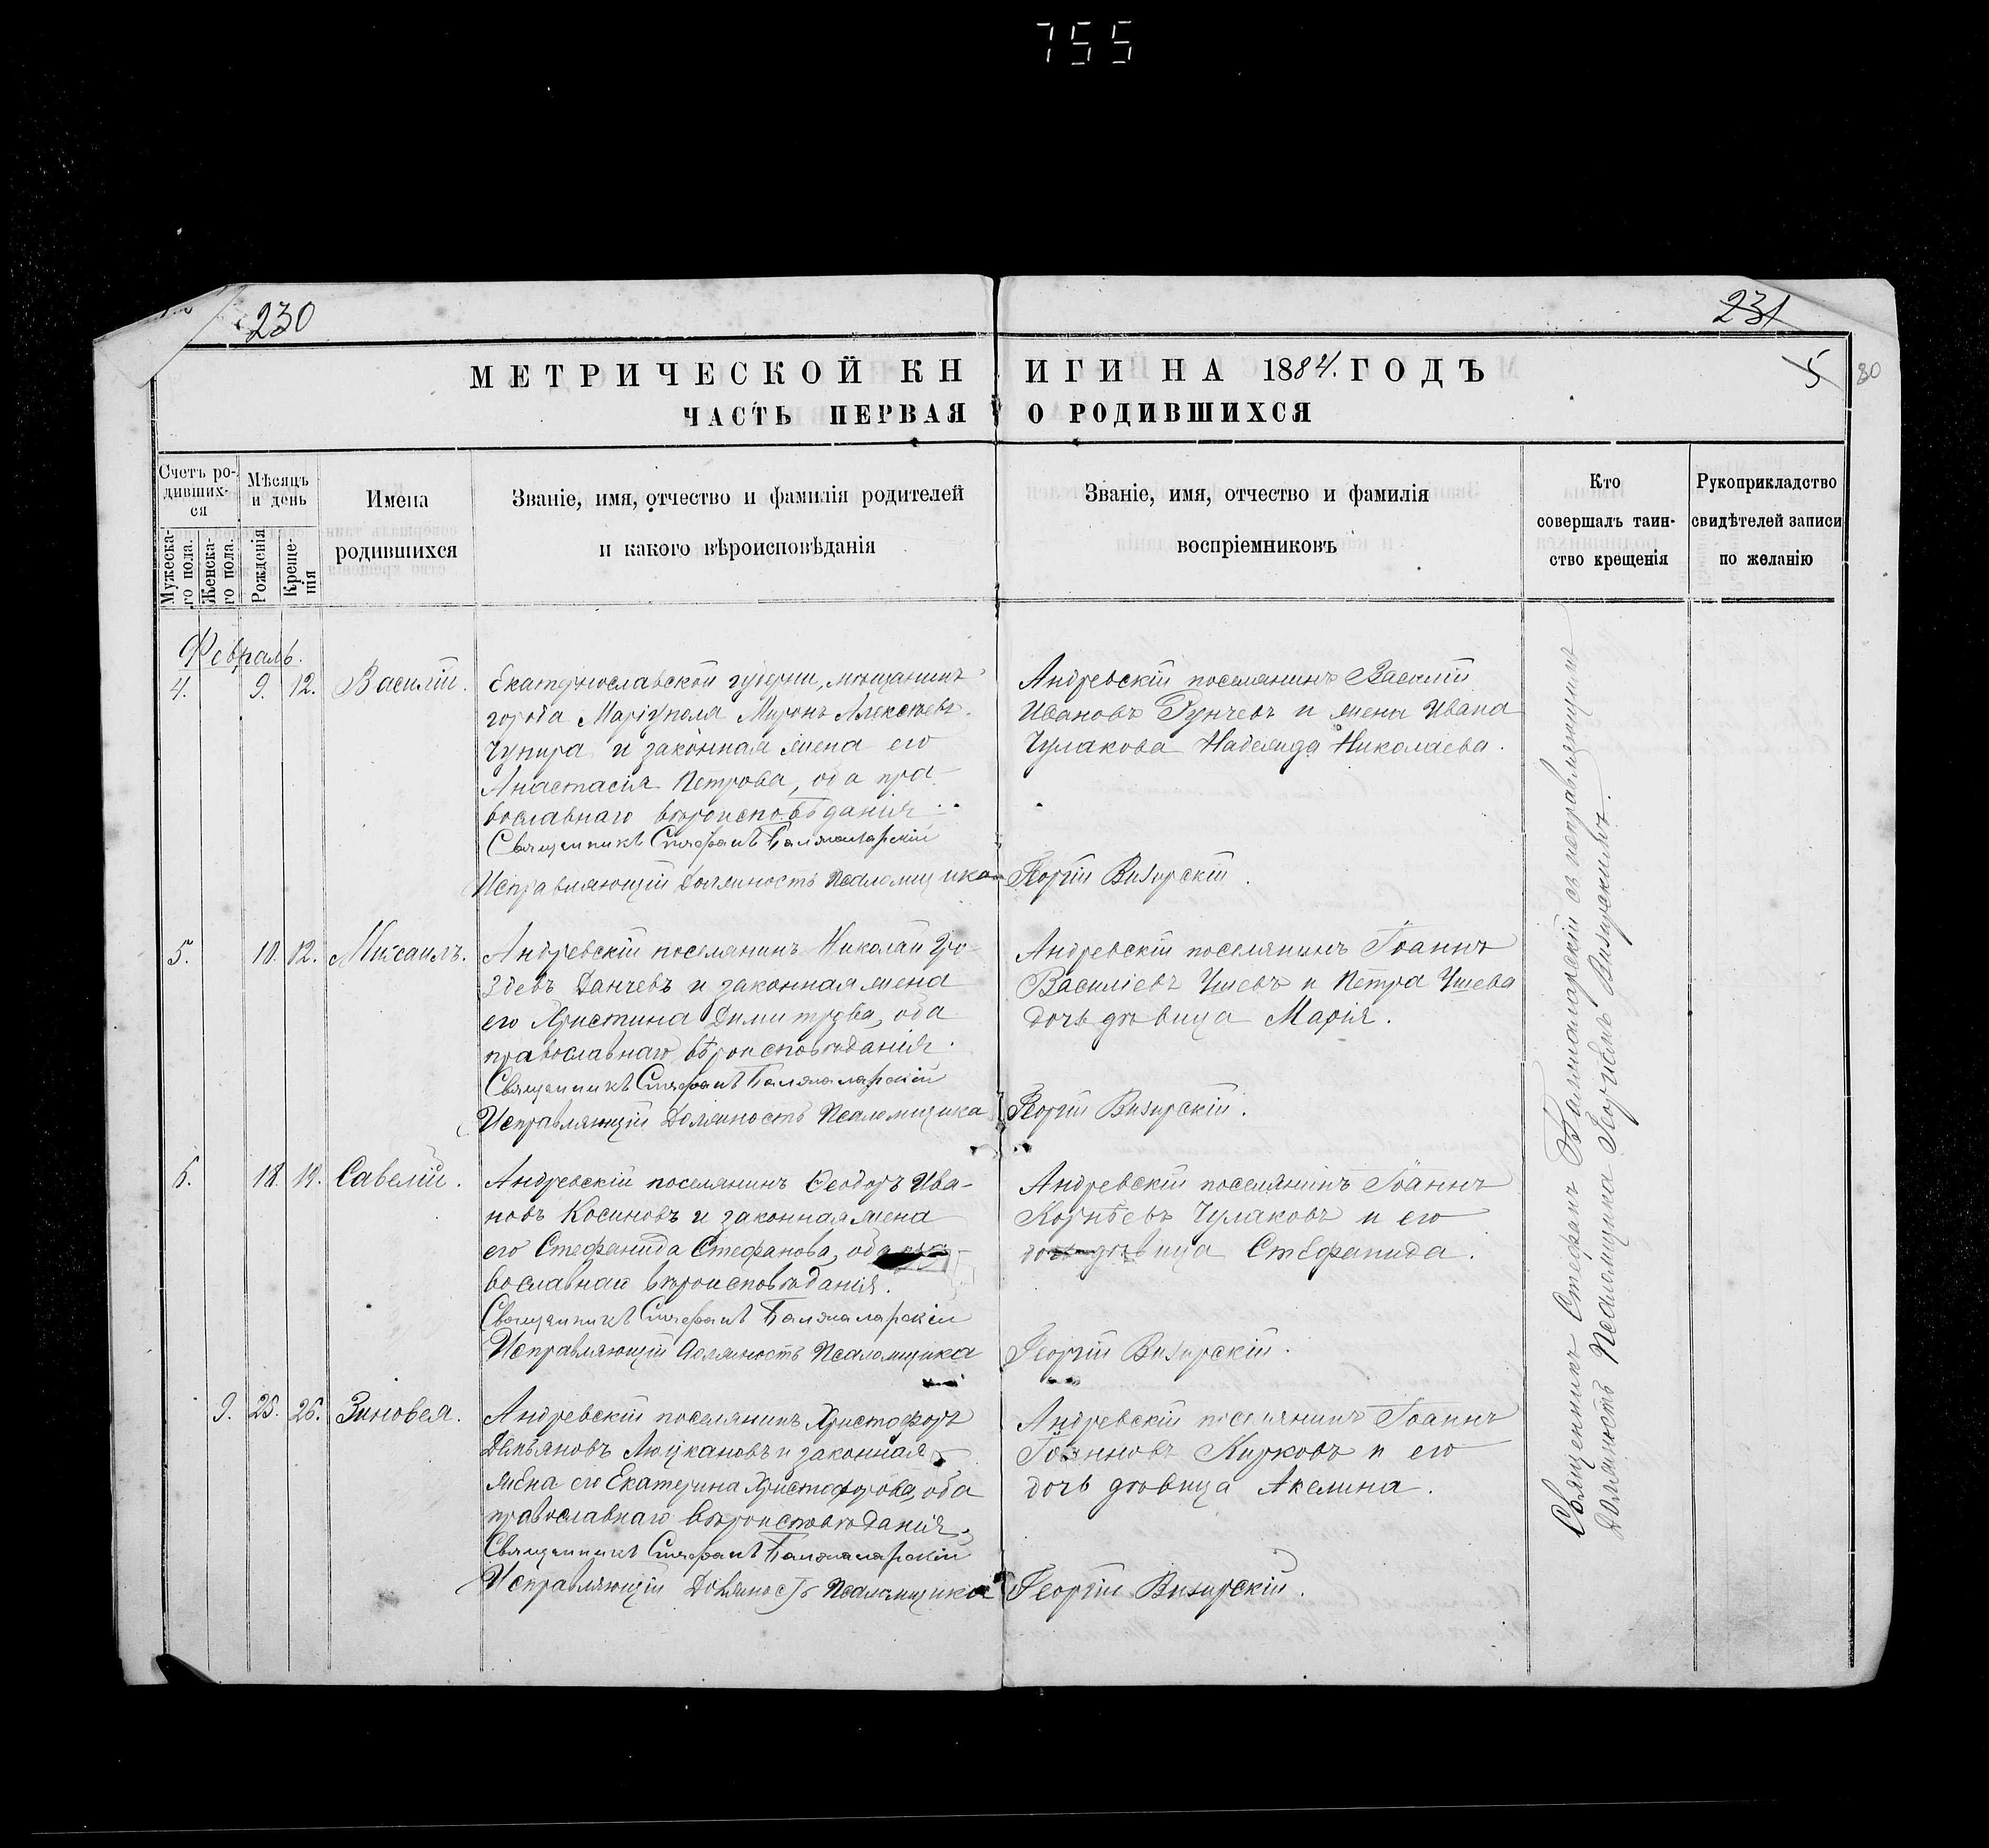 755
230
231
МЕТРИЧЕСКОЙ КНИГИ НА 1884. ГОДЪ
5
80
ЧАСТЬ ПЕРВАЯ О РОДИВШИХСЯ
Счетъ ро-
дивших-
ся
Мужеска-
го пола.
Женска-
го пола.
Мѣсяцъ
и день
Рожденія
Креще-
нія
Имена
родившихся
Званіе, имя, отчество и фамилія родителей
и какого вѣроисповѣданія
Званіе, имя, отчество и фамилія
воспріемниковъ
Кто
совершалъ таин-
ство крещенія
Рукоприкладство
свидѣтелей записи
по желанію
Февраль.
4. 9. 12. Василій.
Екатеринославской губерни, мѣщанинъ
города Маріуполя Миронъ Алексѣевъ
Чупира и законная жена его
Анастасія Петрова, оба пра-
вославнаго вѣроисповѣданія.
Священникъ Стефанъ
Исправляющій должность Псаломщика
Андревскій поселянинъ Василій
Ивановъ Рунчевъ и жена Ивана
Чулакова Надежда Николаева.
Георгій Визирскій.
5. 10. 12. Михаилъ.
Андревскій поселянинъ Николай Гро-
здевъ Данчевъ и законная жена
его Христина Димитрова, оба
православнаго вѣроисповѣданія.
Священникъ Стефанъ
Исправляющій Должность Псаломщика
Андревскій поселянинъ Іоаннъ
Василіевъ Ушевъ и Петра Ушева
дочь дѣвица Марія.
Георгій Визирскій.
6. 18. 19. Савелій.
Андревскій поселянинъ Ѳеодоръ Ива-
новъ Косиновъ и законная жена
его Стефанида Стефанова, оба
вославнаго вѣроисповѣданія.
Священникъ Стефанъ
Исправляющій Должность Псаломщика
Андревскій поселянинъ Іоаннъ
Корнѣевъ Чулаковъ и его
дочь дѣвица Стефанида.
Георгій Визирскій.
9. 25. 26. Зиновея.
Андревскій поселянинъ Христофоръ
Демьяновъ Люцкановъ и законная
жена его Екатерина Христофорова, оба
православнаго вѣроисповѣданія.
Священникъ Стефанъ
Исправляющій Должность Псаломщика
Андревскій поселянинъ Іоаннъ
Іоанновъ Кирковъ и его
дочь дѣвица Акелина.
Георгій Визирскій.
Священникъ Стефанъ съ исправляющимъ
Должность Псаломщика Георгіемъ Визирскимъ.